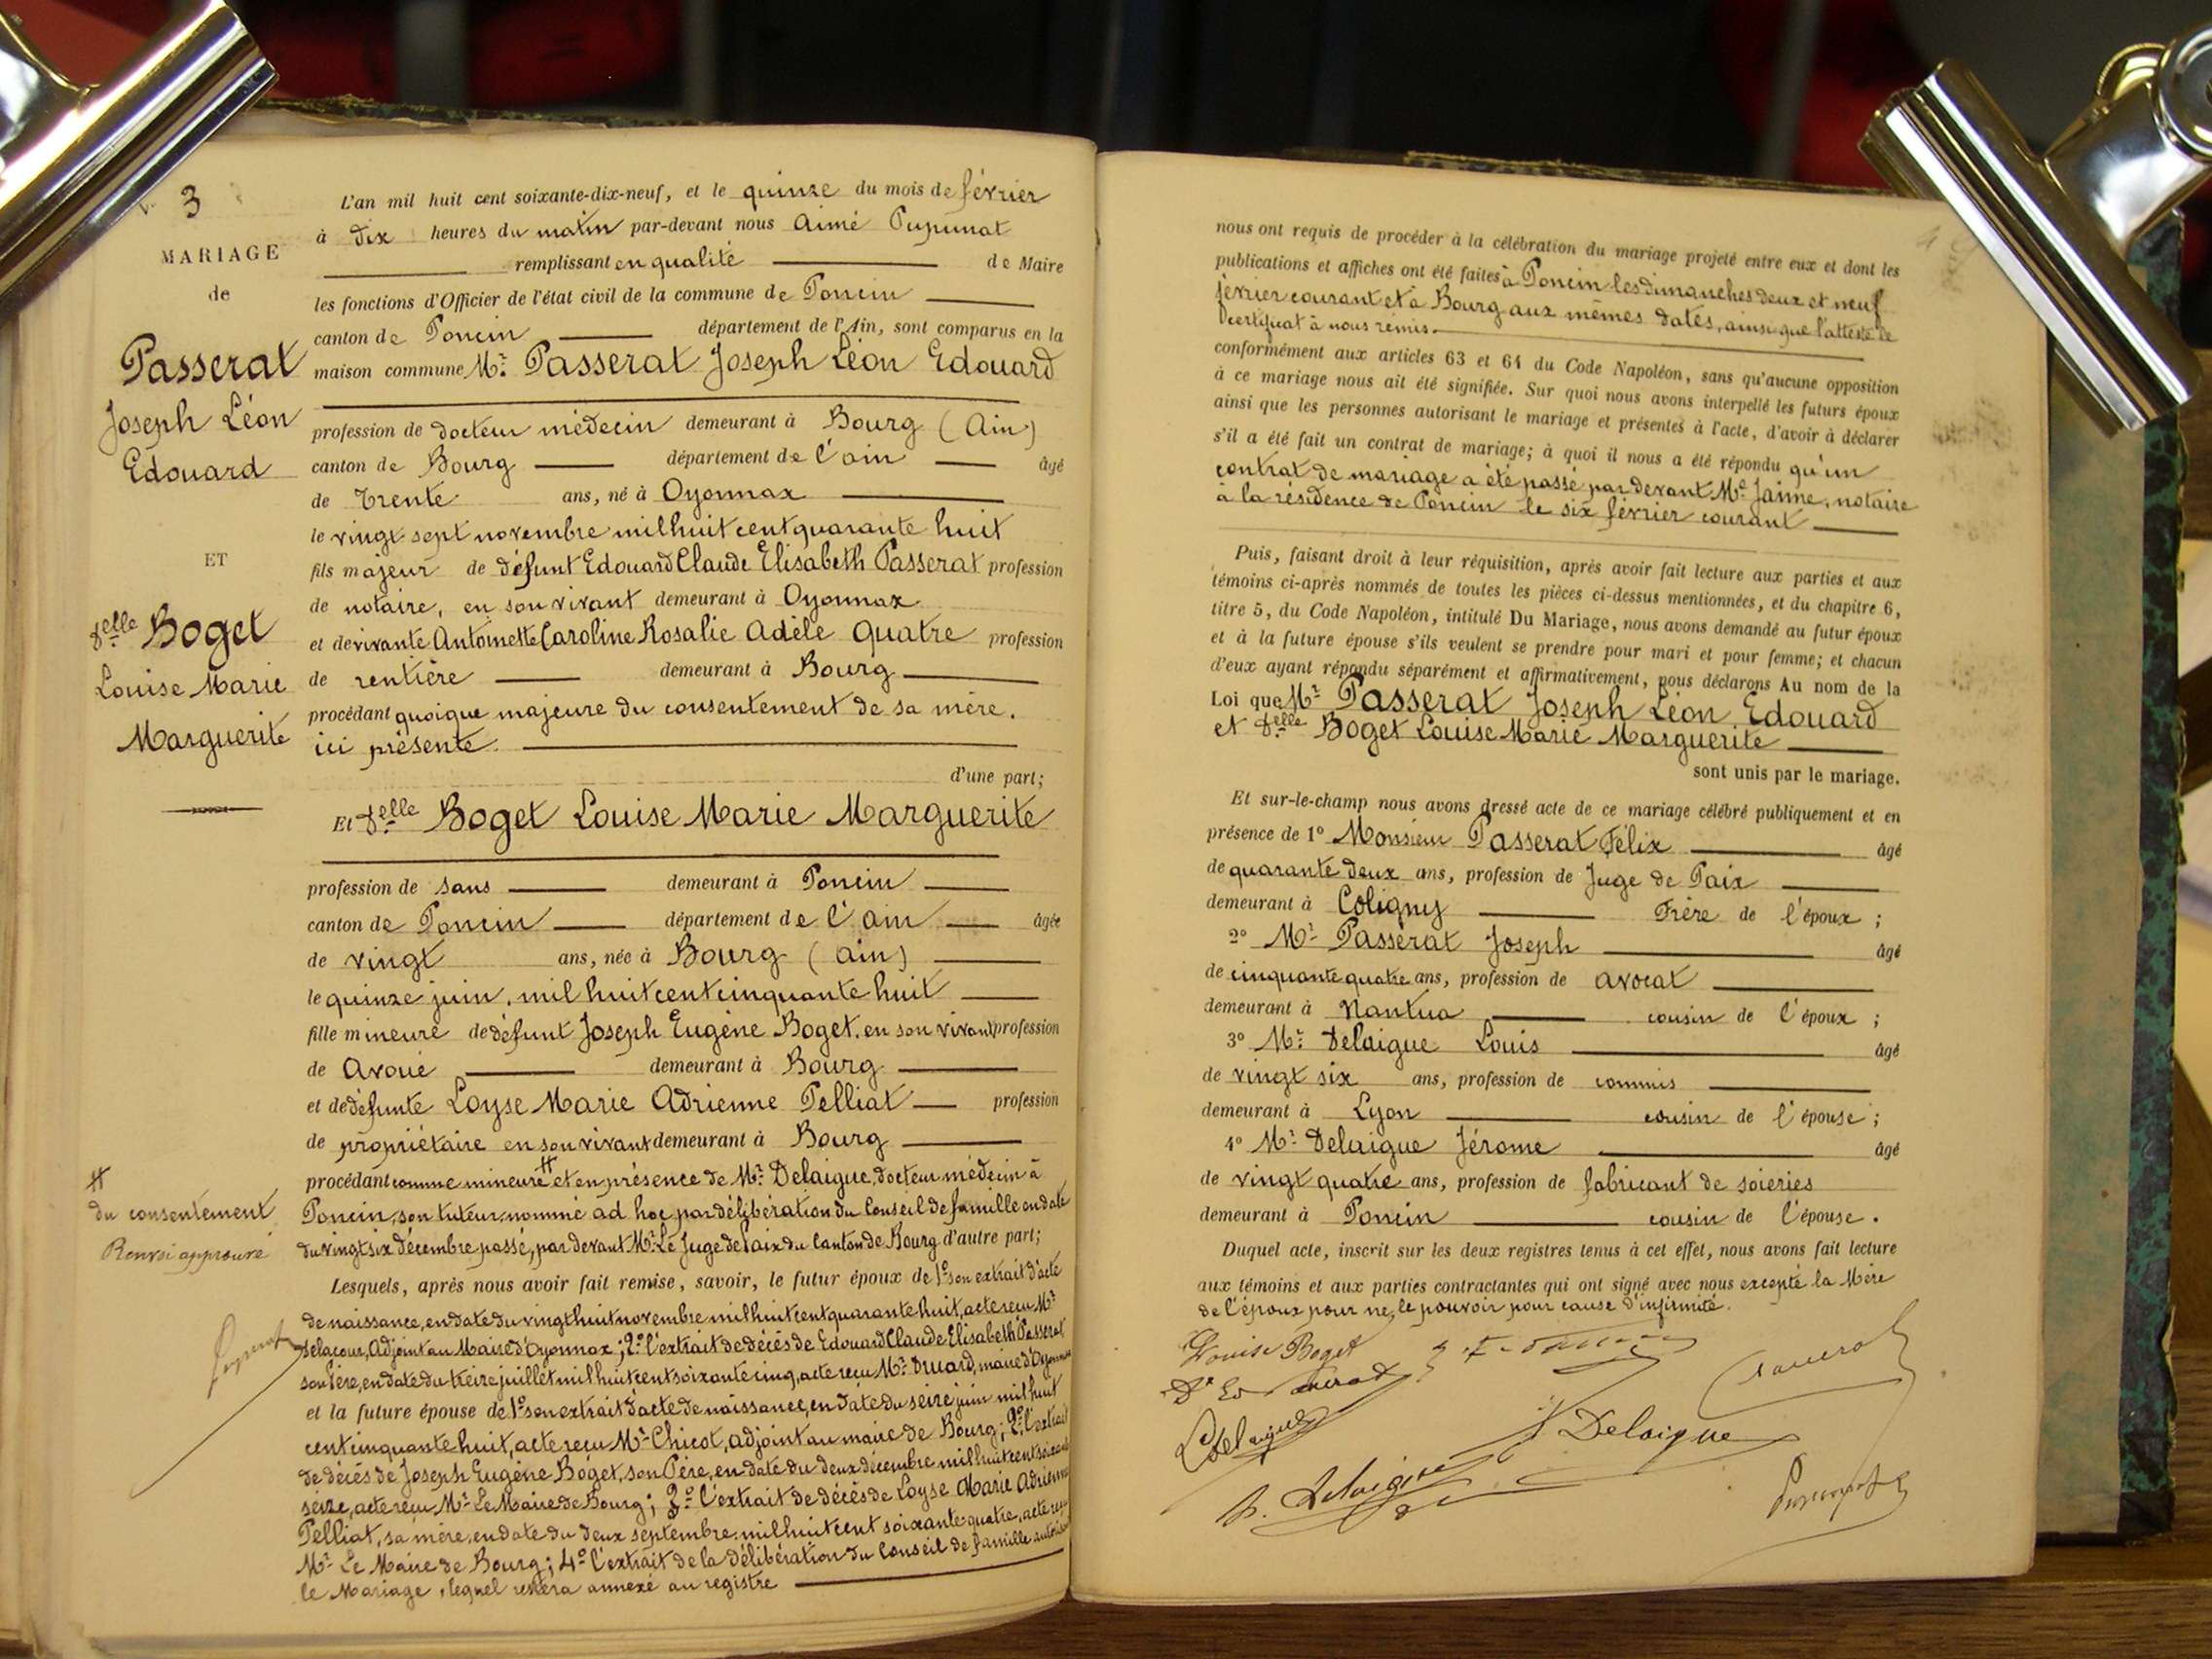 3
MARIAGE
de
Passerat
Joseph Léon
Edouard
ET
Delle Boget
Louise Marie
Marguerite
L'an mil huit cent soixante-dix-neuf, et le quinze du mois de février
à dix heures du matin par-devant nous Aimé Pupunat
remplissant en qualité de Maire
les fonctions d'Officier de l'état civil de la commune de Poncin
canton de Poncin département de l'Ain, sont comparus en la
maison commune Mr. Passerat Joseph Léon Edouard
profession de docteur médecin demeurant à Bourg (Ain)
canton de Bourg département de l'ain âgé
de trente ans, né à Oyonnax
le vingt sept novembre mil huit cent quarante huit
fils majeur de défunt Edouard Claude Elisabeth Passerat profession
de notaire, en son vivant demeurant à Oyonnax
et de vivante Antoinette Caroline Rosalie Adèle Quatre profession
de rentière demeurant à Bourg
procédant quoique majeure du consentement de sa mère.
ici présente.
d'une part;
Et Delle Boget Louise Marie Marguerite
profession de sans demeurant à Poncin
canton de Poncin département de l'ain âgée
de vingt ans, née à Bourg (ain)
le quinze juin, mil huit cent cinquante huit
fille mineure de défunt Joseph Eugène Boget, en son vivant profession
de Avoué demeurant à Bourg
et de défunte Loyse Marie Adrienne Pelliat profession
de propriétaire en son vivant demeurant à Bourg
procédant comme mineure # et en présence de Mr. Delaigue, docteur médecin à
Poncin, son tuteur, nommé ad hoc par délibération du Conseil de famille en date
du vingt six décembre passé, par devant Mr. Le Juge de Paix du Canton de Bourg d'autre part;
# du consentement
Renvoi approuvé
Lesquels, après nous avoir fait remise, savoir, le futur époux de 1º son extrait d'acte
de naissance, en date du vingt huit novembre mil huit cent quarante huit, acte reçu Mr
Delacour, Adjoint au Maire d'Oyonnax; 2º l'extrait de décès de Edouard Claude Elisabeth Passerat
son Père, en date du treize juillet mil huit cent soixante cinq, acte reçu Mr. Druard, maire d'Oyonnax
et la future épouse de 1º son extrait d'acte de naissance, en date du seize juin mil huit
cent cinquante huit, acte reçu Mr Chicot, adjoint au maire de Bourg; 2º l'extrait
de décès de Joseph Eugène Boget, son Père, en date du deux décembre mil huit cent soixante
seize, acte reçu Mr. Le Maire de Bourg; 3º l'extrait de décès de Loyse Marie Adrienne
Pelliat, sa mère, en date du deux septembre mil huit cent soixante quatre, acte reçu
Mr. Le Maire de Bourg; 4º l'extrait de la délibération du Conseil de famille
le Mariage, lequel restera annexé au registre
nous ont requis de procéder à la célébration du mariage projeté entre eux et dont les
publications et affiches ont été faites à Poncin les dimanches deux et neuf
février courant et à Bourg aux mêmes dates, ainsi que l'atteste le
certificat à nous remis.
conformément aux articles 63 et 64 du Code Napoléon, sans qu'aucune opposition
à ce mariage nous ait été signifiée. Sur quoi nous avons interpellé les futurs époux
ainsi que les personnes autorisant le mariage et présentes à l'acte, d'avoir à déclarer
s'il a été fait un contrat de mariage; à quoi il nous a été répondu qu'un
contrat de mariage a été passé par devant Me Jaime, notaire
à la résidence de Poncin le six février courant
Puis, faisant droit à leur réquisition, après avoir fait lecture aux parties et aux
témoins ci-après nommés de toutes les pièces ci-dessus mentionnées, et du chapitre 6,
titre 5, du Code Napoléon, intitulé Du Mariage, nous avons demandé au futur époux
et à la future épouse s'ils veulent se prendre pour mari et pour femme; et chacun
d'eux ayant répondu séparément et affirmativement, nous déclarons Au nom de la
Loi que Mr Passerat Joseph Léon Edouard
et Delle Boget Louise Marie Marguerite
sont unis par le mariage.
Et sur-le-champ nous avons dressé acte de ce mariage célébré publiquement et en
présence de 1º Monsieur Passerat Félix âgé
de quarante deux ans, profession de Juge de Paix
demeurant à Coligny Frère de l'époux;
2º Mr. Passerat Joseph âgé
de cinquante quatre ans, profession de avocat
demeurant à Nantua cousin de l'époux;
3º Mr. Delaigue Louis âgé
de vingt six ans, profession de commis
demeurant à Lyon cousin de l'épouse;
4º Mr. Delaigue Jérome âgé
de vingt quatre ans, profession de fabricant de soieries
demeurant à Poncin cousin de l'épouse.
Duquel acte, inscrit sur les deux registres tenus à cet effet, nous avons fait lecture
aux témoins et aux parties contractantes qui ont signé avec nous excepté la Mère
de l'époux pour ne le pouvoir pour cause d'infirmité.
Louise Boget
Delaigue
J Delaigue
Delaigue